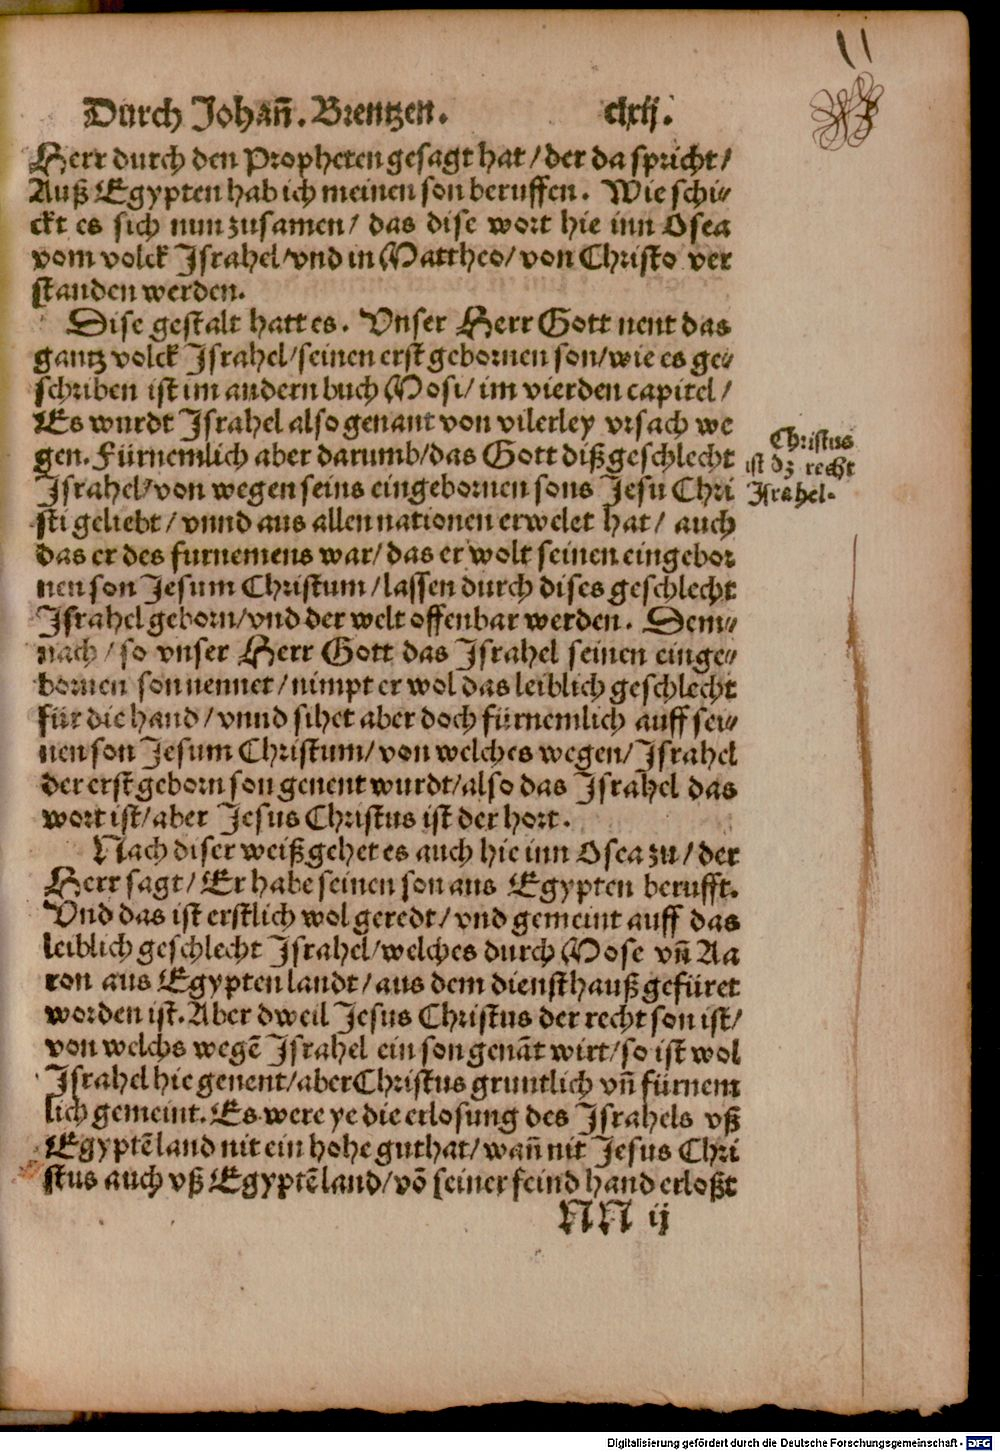 11
Durch Johañ. Brentzen. clxij.
Herr durch den Propheten gesagt hat / der da spricht /
Auß Egypten hab ich meinen son beruffen. Wie schi⸗
ckt es sich nun zusamen / das dise wort hie inn Osea
vom volck Jsrahel / vnd in Mattheo / von Christo ver
standen werden.
Dise gestalt hatt es. Vnser Herr Gott nent das
gantz volck Jsrahel / seinen erst gebornen son / wie es ge⸗
schriben ist im andern buch Mosi / im vierden capitel /
Es wurdt Jsrahel also genant von vilerley vrsach we
gen. Fürnemlich aber darumb / das Gott diß geschlecht
Jsrahel / von wegen seins eingebornen sons Jesu Chri
sti geliebt / vnnd aus allen nationen erwelet hat / auch
das er des furnemens war / das er wolt seinen eingebor
nen son Jesum Christum / lassen durch dises geschlecht
Jsrahel geborn / vnd der welt offenbar werden. Dem⸗
nach / so vnser Herr Gott das Jsrahel seinen einge⸗
bornen son nennet / nimpt er wol das leiblich geschlecht
für die hand / vnnd sihet aber doch fürnemlich auff sei⸗
nen son Jesum Christum / von welches wegen / Jsrahel
der erst geborn son genent wurdt / also das Jsrahel das
wort ist / aber Jesus Christus ist der hort.
Christus
ist dz recht
Jsrahel.
Nach diser weiß gehet es auch hie inn Osea zu / der
Herr sagt / Er habe seinen son aus Egypten berufft.
Vnd das ist erstlich wol geredt / vnd gemeint auff das
leiblich geschlecht Jsrahel / welches durch Mose vñ Aa
ron aus Egypten landt / aus dem diensthauß gefüret
worden ist. Aber dweil Jesus Christus der recht son ist /
von welchs wegẽ Jsrahel ein son genãt wirt / so ist wol
Jsrahel hie genent / aber Christus gruntlich vñ fürnem
lich gemeint. Es were ye die erlosung des Jsrahels vß
Egyptẽland nit ein hohe guthat / wañ nit Jesus Chri
stus auch vß Egyptẽland / võ seiner feind hand erloßt
NN ij
Digitalisierung gefördert durch die Deutsche Forschungsgemeinschaft - DFG